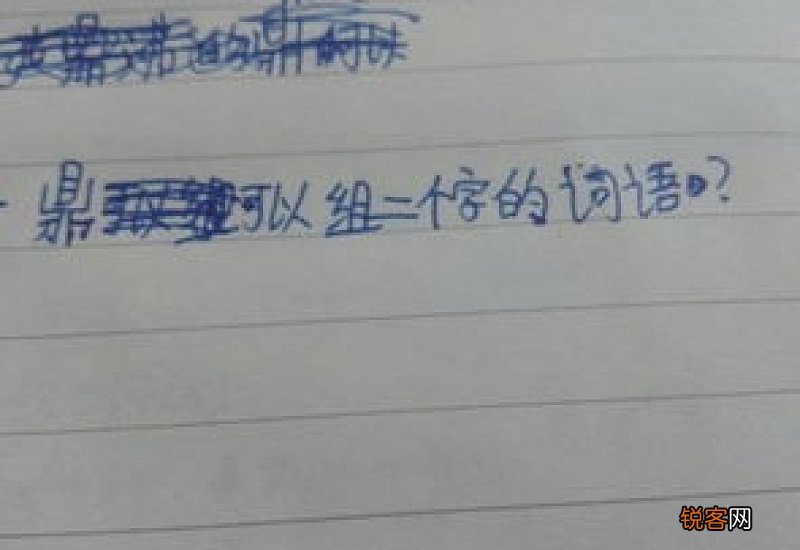 鼎可以组二个字的词语?
锐客网